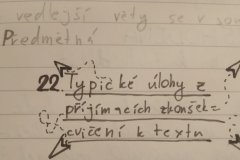 vedlejší věty se v sou
Předmětná
22 Typické úlohy z
přijímacích zkoušek =
cvičení k textu